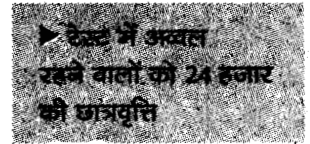 ▶ टेस्ट में अव्वल
रहने वालों को 24 हजार
की छात्रवृत्ति